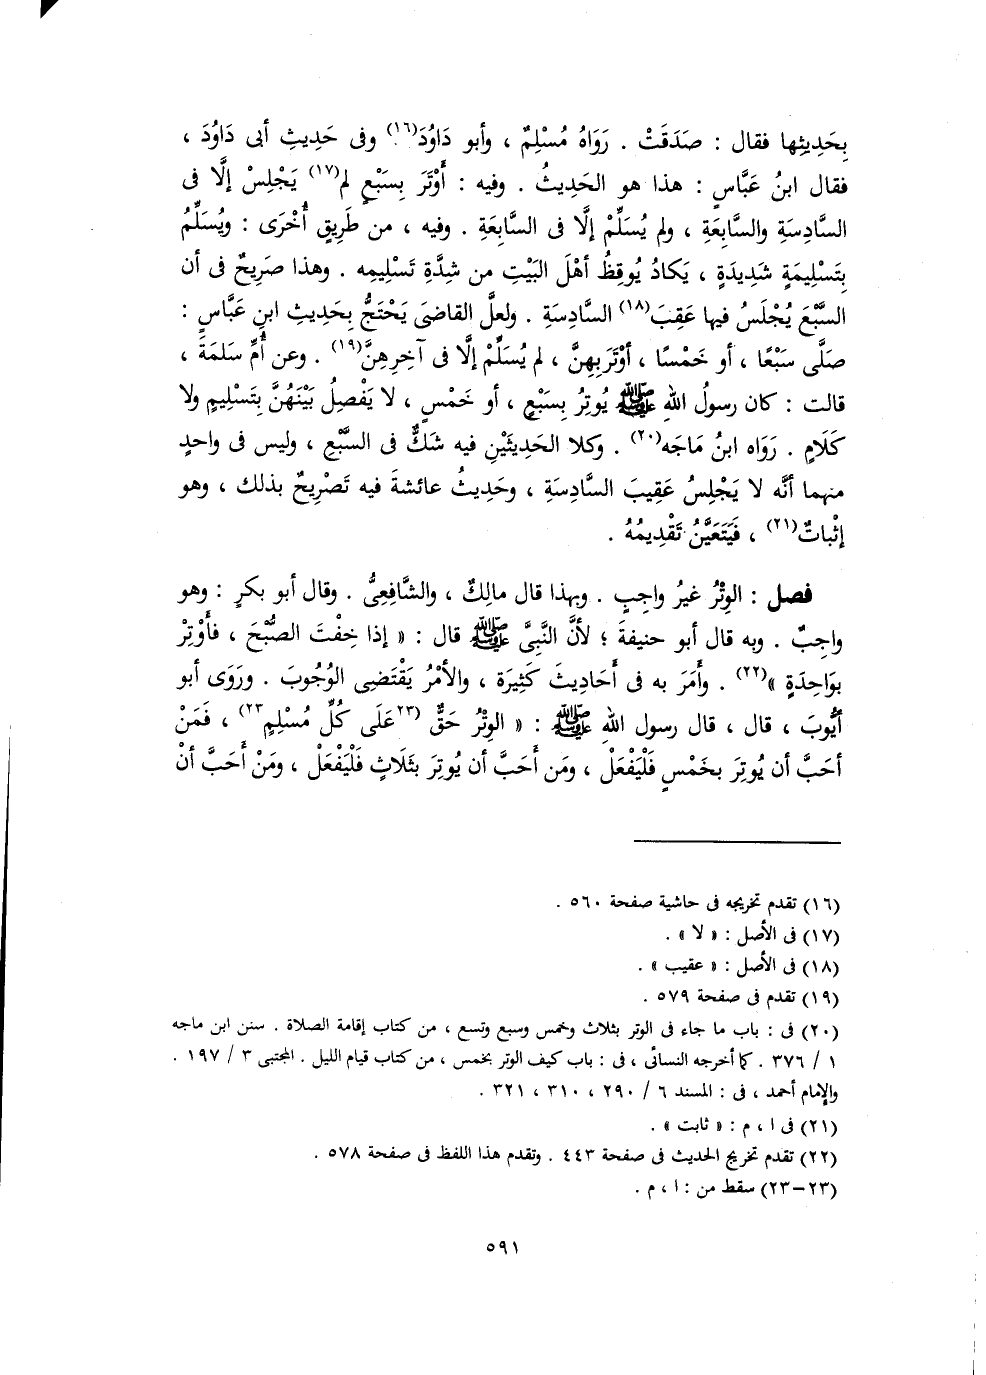 بِحَدِيثِها فقال : صَدَقَتْ . رَوَاهُ مُسْلِمٌ ، وأبو دَاوُدَ(١٦) وفى حَدِيثِ أبى دَاوُدَ ،
فقال ابنُ عَبَّاسٍ : هذا هو الحَدِيثُ . وفيه : أَوْتَرَ بِسَبْعٍ لم(١٧) يَجْلِسْ إلَّا فى
السَّادِسَةِ والسَّابِعَةِ ، ولم يُسَلِّمْ إلَّا فى السَّابِعَةِ . وفيه ، من طَرِيقٍ أُخْرَى : ويُسَلِّمُ
بِتَسْلِيمَةٍ شَدِيدَةٍ ، يَكادُ يُوقِظُ أهْلَ البَيْتِ من شِدَّةِ تَسْلِيمِه . وهذا صَرِيحٌ فى أن
السَّبْعَ يُجْلَسُ فيها عَقِبَ(١٨) السَّادِسَةِ . ولعلَّ القاضىَ يَحْتَجُّ بِحَدِيثِ ابنِ عَبَّاسٍ :
صَلَّى سَبْعًا ، أو خَمْسًا ، أوْتَرَ بِهِنَّ ، لم يُسَلِّمْ إلَّا فى آخِرِهِنَّ(١٩) . وعن أُمِّ سَلمَةَ ،
قالت : كان رسولُ اللهِ ﷺ يُوتِرُ بِسَبْعٍ ، أو خَمْسٍ ، لا يَفْصِلُ بَيْنَهُنَّ بِتَسْلِيمٍ ولا
كَلَامٍ . رَوَاه ابنُ مَاجَه(٢٠) . وكلا الحَدِيثَيْنِ فيه شَكٌّ فى السَّبْعِ ، وليس فى واحدٍ
منهما أنَّه لا يَجْلِسُ عَقِيبَ السَّادِسَةِ ، وحَدِيثُ عائشةَ فيه تَصْرِيحٌ بذلك ، وهو
إثْباتٌ(٢١) ، فَيَتَعَيَّنُ تَقْدِيمُهُ .
فصل : الوِتْرُ غيرُ واجِبٍ . وبهذا قال مالِكٌ ، والشَّافِعِىُّ . وقال أبو بكرٍ : وهو
واجِبٌ . وبه قال أبو حنيفةَ ؛ لأنَّ النَّبِىَّ ﷺ قال : « إذا خِفْتَ الصُّبْحَ ، فأَوْتِرْ
بوَاحِدَةٍ »(٢٢) . وأَمَرَ به فى أحَادِيثَ كَثِيرَة ، والأمْرُ يَقْتَضِى الوُجُوبَ . ورَوَى أبو
أيُّوبَ ، قال ، قال رسول اللهِ ﷺ : « الوِتْرُ حَقٌّ (٢٣عَلَى كُلِّ مُسْلِمٍ٢٣) ، فَمَنْ
أحَبَّ أن يُوتِرَ بخَمْسٍ فَلْيَفْعَلْ ، ومَن أحَبَّ أن يُوتِرَ بثَلَاثٍ فَلْيَفْعَلْ ، ومَنْ أحَبَّ أنْ
(١٦) تقدم تخريجه فى حاشية صفحة ٥٦٠ .
(١٧) فى الأصل : « لا » .
(١٨) فى الأصل : « عقيب » .
(١٩) تقدم فى صفحة ٥٧٩ .
(٢٠) فى : باب ما جاء فى الوتر بثلاث وخمس وسبع وتسع ، من كتاب إقامة الصلاة . سنن ابن ماجه
١ / ٣٧٦ . كما أخرجه النسائى ، فى : باب كيف الوتر بخمس ، من كتاب قيام الليل . المجتبى ٣ / ١٩٧ .
والإمام أحمد ، فى : المسند ٦ / ٢٩٠ ، ٣١٠ ، ٣٢١ .
(٢١) فى ا ، م : « ثابت » .
(٢٢) تقدم تخريج الحديث فى صفحة ٤٤٣ . وتقدم هذا اللفظ فى صفحة ٥٧٨ .
(٢٣-٢٣) سقط من : ا ، م .
٥٩١